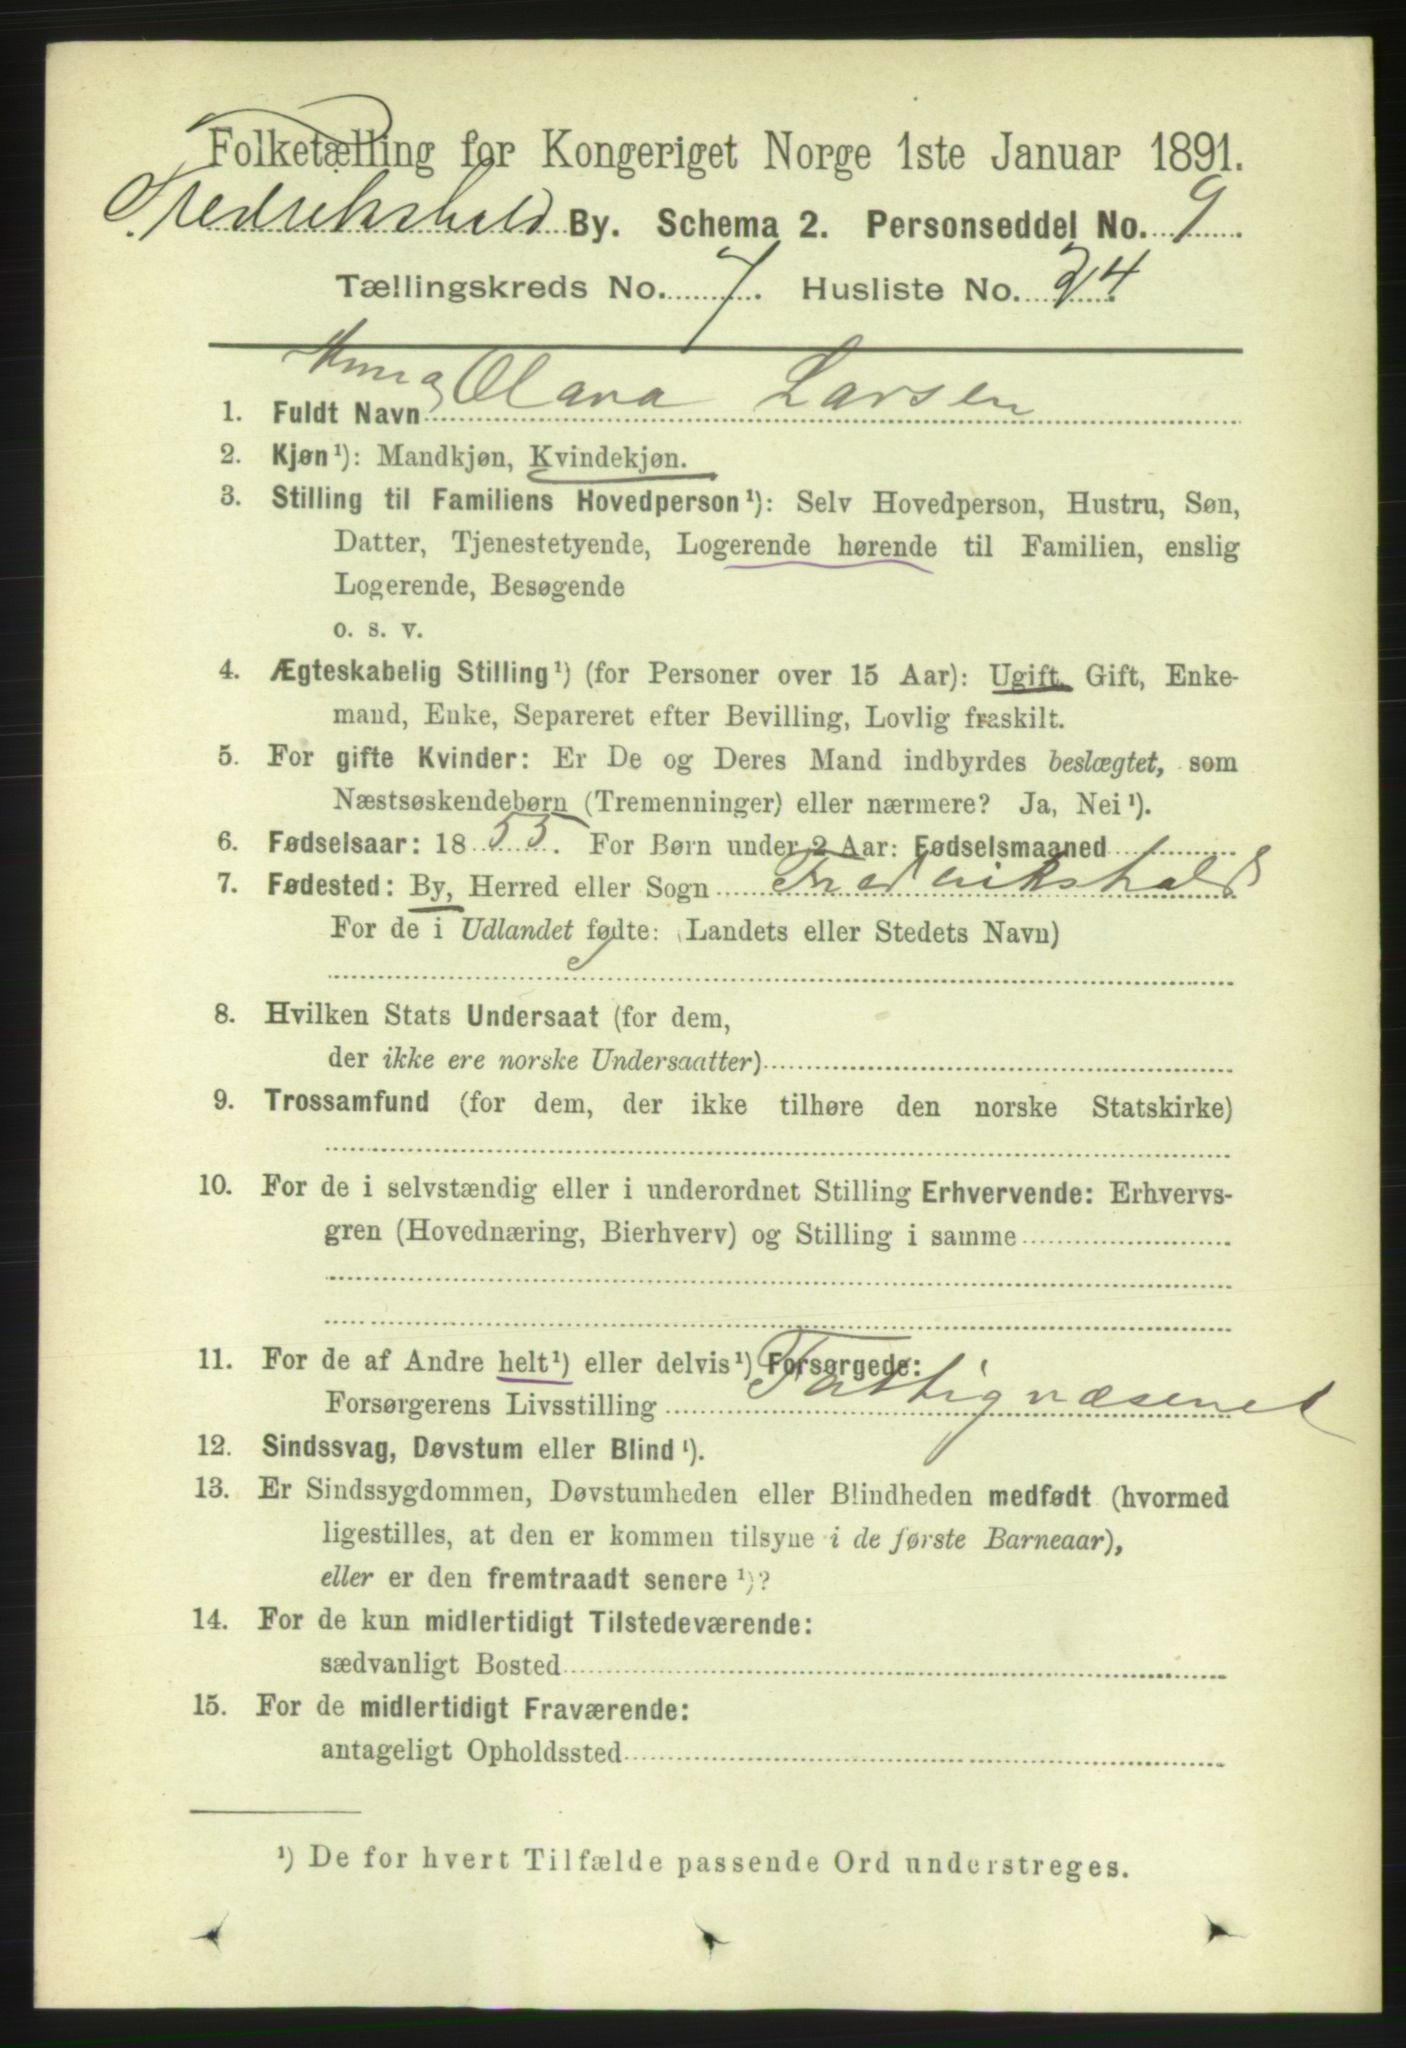 Folketælling for Kongeriget Norge 1ste Januar 1891.
Fredrikshald By. Schema 2. Personseddel No. 9
Tællingskreds No. 7. Husliste No. 24
Anna Olava Larsen
1. Fuldt Navn
2. Kjøn¹): Mandkjøn, Kvindekjøn.
3. Stilling til Familiens Hovedperson¹): Selv Hovedperson, Hustru, Søn,
Datter, Tjenestetyende, Logerende hørende til Familien, enslig
Logerende, Besøgende
o. s. v.
4. Ægteskabelig Stilling¹) (for Personer over 15 Aar): Ugift, Gift, Enke-
mand, Enke, Separeret efter Bevilling, Lovlig fraskilt.
5. For gifte Kvinder: Er De og Deres Mand indbyrdes beslægtet, som
Næstsøskendebørn (Tremenninger) eller nærmere? Ja, Nei¹).
6. Fødselsaar: 1855. For Børn under 2 Aar: Fødselsmaaned
7. Fødested: By, Herred eller Sogn Frederikshald
For de i Udlandet fødte: (Landets eller Stedets Navn)
8. Hvilken Stats Undersaat (for dem,
der ikke ere norske Undersaatter)
9. Trossamfund (for dem, der ikke tilhøre den norske Statskirke)
10. For de i selvstændig eller i underordnet Stilling Erhvervende: Erhvervs-
gren (Hovednæring, Bierhverv) og Stilling i samme
11. For de af Andre helt¹) eller delvis¹) Forsørgede:
Forsørgerens Livsstilling Fattigvæsenet
12. Sindssvag, Døvstum eller Blind¹).
13. Er Sindssygdommen, Døvstumheden eller Blindheden medfødt (hvormed
ligestilles, at den er kommen tilsyne i de første Barneaar),
eller er den fremtraadt senere¹)?
14. For de kun midlertidigt Tilstedeværende:
sædvanligt Bosted
15. For de midlertidigt Fraværende:
antageligt Opholdssted
¹) De for hvert Tilfælde passende Ord understreges.